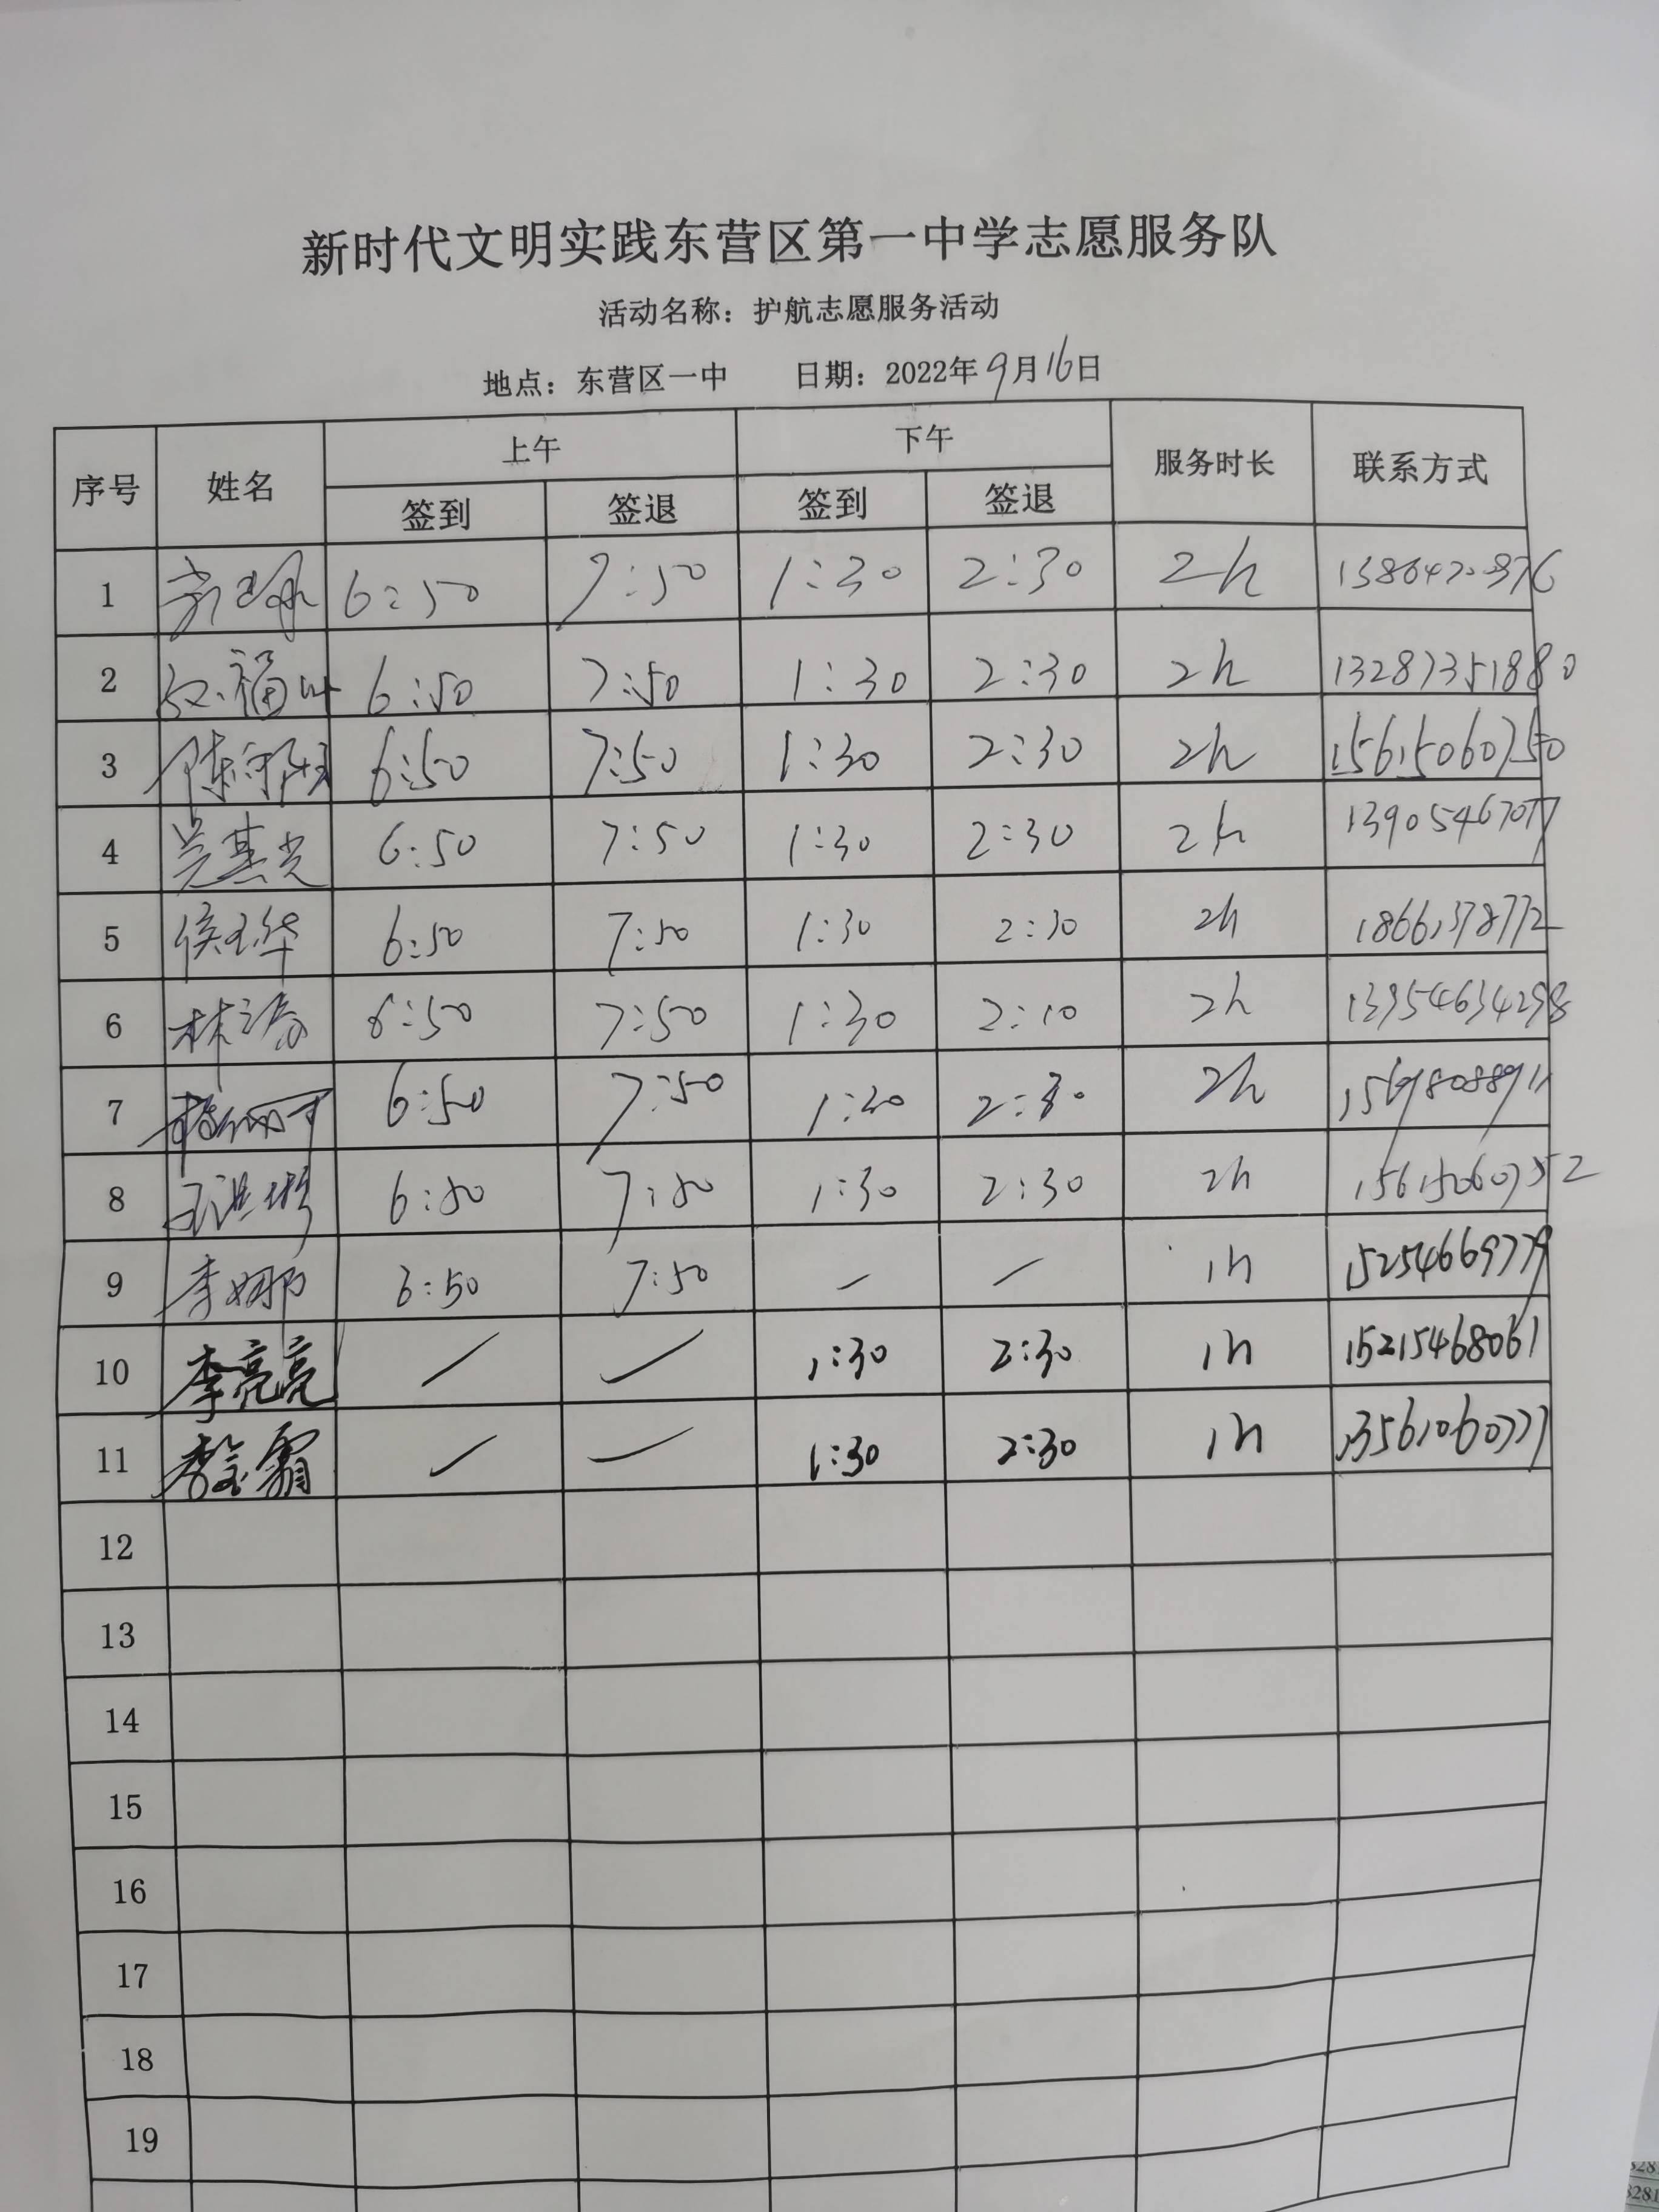 新时代文明实践东营区第一中学志愿服务队
活动名称：护航志愿服务活动
地点：东营区一中 日期：2022年9月16日
序号 姓名 上午 下午 服务时长 联系方式
签到 签退 签到 签退
1 6:50 7:50 1:30 2:30 2h
2 6:50 7:50 1:30 2:30 2h 13287351880
3 6:50 7:50 1:30 2:30 2h 15615060750
4 吴基光 6:50 7:50 1:30 2:30 2h 13905467077
5 侯玉华 6:50 7:50 1:30 2:30 2h 18661378772
6 6:50 7:50 1:30 2:10 2h 13954634298
7 6:50 7:50 1:30 2:30 2h 15698088911
8 6:50 7:50 1:30 2:30 2h 15615060752
9 李娜 6:50 7:50 — — 1h 15254669779
10 李亮亮 — — 1:30 2:30 1h 15215468061
11 — — 1:30 2:30 1h 13561060777
12
13
14
15
16
17
18
19